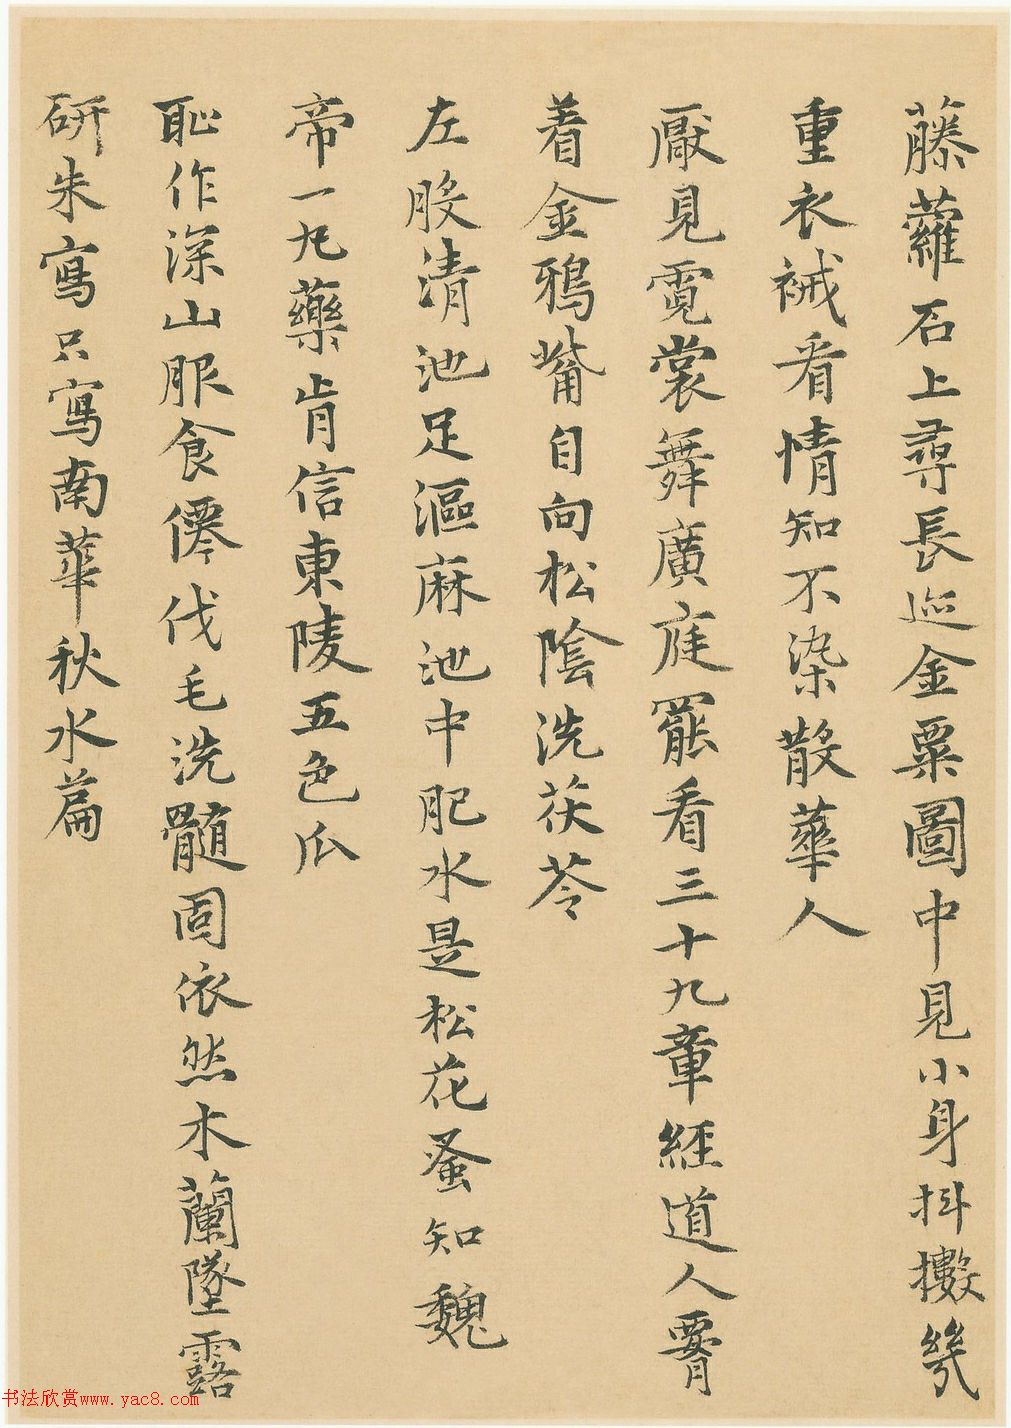 藤蘿石上尋長巡金粟圖中見小身抖擻幾
重衣裓看情知不染散華人
厭見霓裳舞廣庭罷看三十九章經道人腰
着金鴉觜自向松陰洗茯苓
左股清池足漚麻池中肥水是松花蚤知魏
帝一丸藥肯信東陵五色瓜
恥作深山服食僊伐毛洗髓固依然木蘭墜露
研朱寫只寫南華秋水篇
书法欣赏www.yac8.com